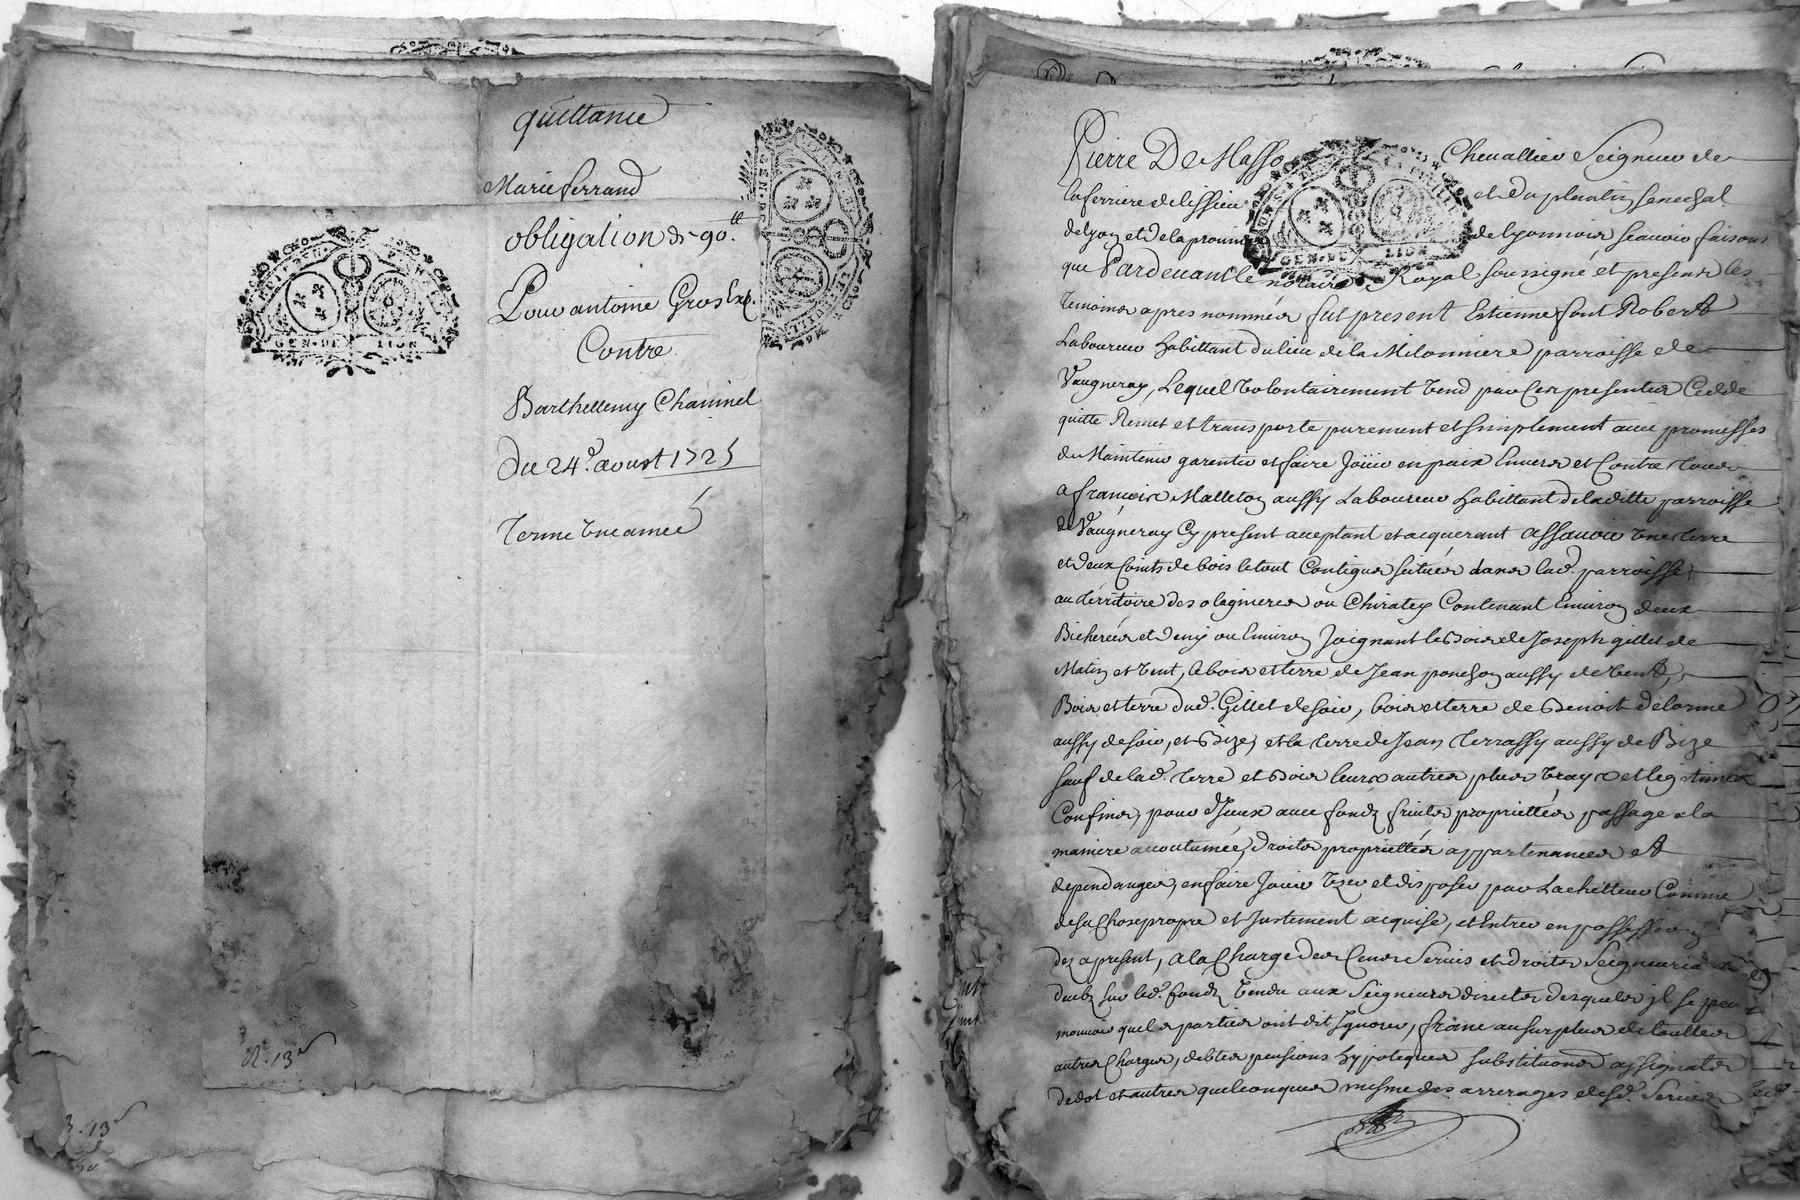 quittance
Marie ferrand
obligation de 90.lt
Pour antoine Gros
Contre
Barthellemy Chainnel
Du 24.e aoust 1725
GEN.DE LION
GEN.DE LION
R. 13
R. 13
Pierre De Masso Chevallier Seigneur de
la ferriere de lissieu et du plantin senechal
de lyon et de la province de lyonnois scavoir faisons
que Pardevant le notaire Royal soussigné et presens les
temoins apres nommés fut present Estienne font Robert
Laboureur habittant du lieu de la Milonniere parroisse de
Vaugneray, Lequel volontairement vend par ces presentes Cedde
quitte Remet et transporte purement et simplement avec promesses
de Maintenir garentir et faire Joüir en paix Envers et Contre tous
a françois Malleton aussy Laboureur habittant de laditte parroisse
de Vaugneray Cy present acceptant et acquerant assavoir une terre
et deux Coints de bois le tout Contigus scitués dans lad. parroisse
au territoire des olagnieres ou Chiratex Contenant Environ deux
Bicherées et demy ou Environ Joignant le Bois de Joseph gillet de
Matin et vent, le bois et terre de Jean ponchon aussy de vent,
Bois et terre dud. Gillet de soir, bois et terre de Benoit delorme
aussy de soir, et Bize, et la terre de Jean Terrassy aussy de Bize
sauf de lad. terre et Bois leurs autres plus vrays et legitimes
Confins, pour d'Jceux avec fondz fruits proprietés passage a la
maniere accoutumée, droits proprietés appartenances et
dependances, en faire Jouir User et disposer par Lachetteur Comme
de sa Chose propre et Justement acquise, et Entrer en possession
dez a present, a la Charge des Cens Servis et droits Seigneuriaux
deubz sur led. fondz vendu aux Seigneurs directes desquels jl se peu
mouvoir quel s parties ont dit Ignorer, franc au surplus de touttes
autres Charges, debtes pensions hypoteques substitutions assignats
de dot et autres quelconques mesme des arrerages desd. Servis
GEN.DE LION